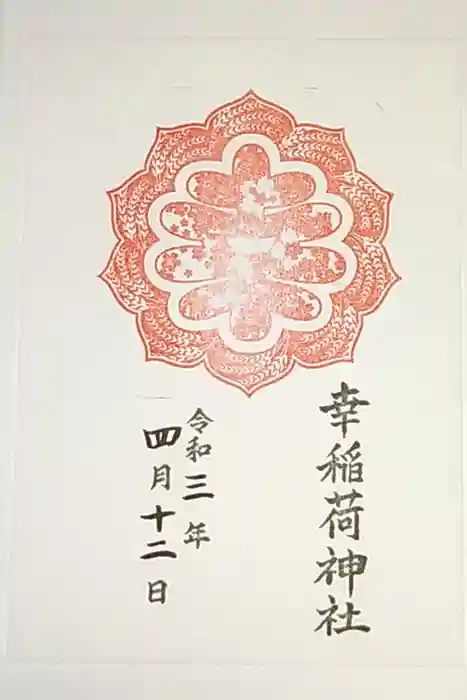 幸稲荷神社
令和三年
四月十二日